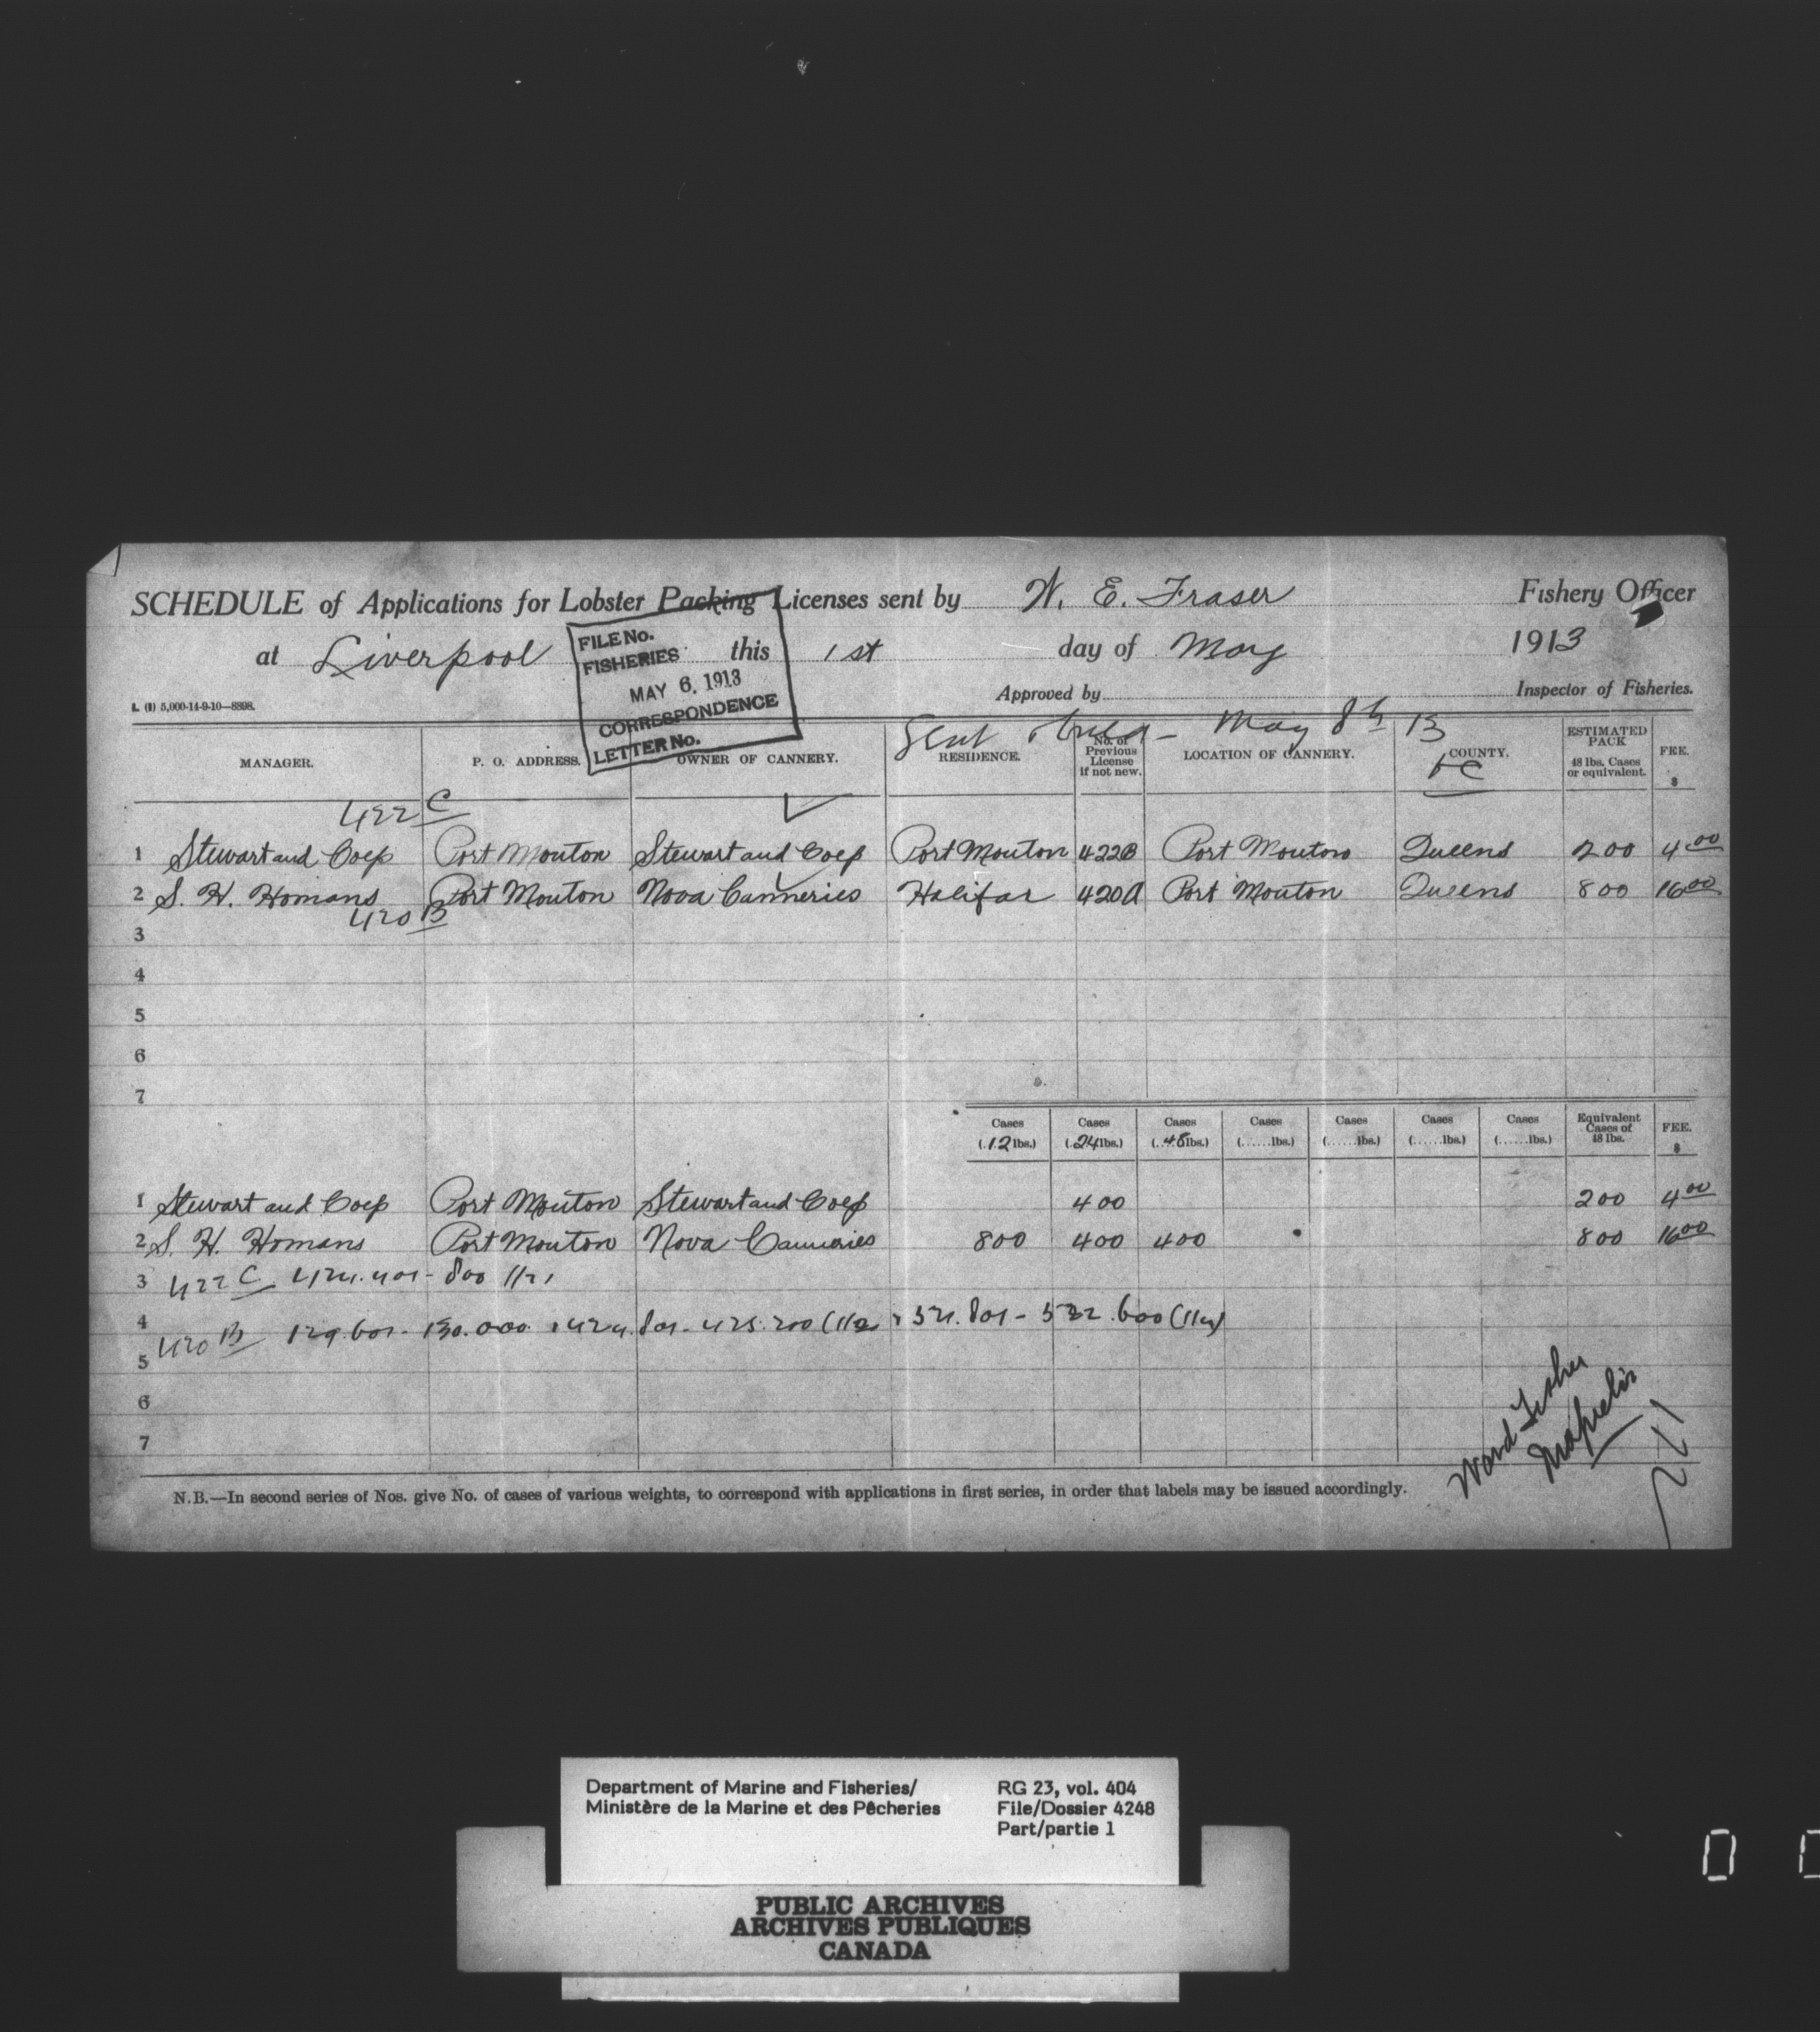 SCHEDULE of Applications for Lobster Packing Licenses sent by W. E. Fraser Fishery Officer
at Liverpool this 1st day of May 1913
FILE No.
FISHERIES
MAY 6. 1913
CORRESPONDENCE
LETTER No.
Approved by Inspector of Fisheries.
L. (1) 5,000-14-9-10—8898.
Sent May 8th 13
MANAGER. P. O. ADDRESS. OWNER OF CANNERY. RESIDENCE. No. of Previous License if not new. LOCATION OF CANNERY. COUNTY. ESTIMATED PACK 48 lbs. Cases or equivalent. FEE. $
422 C
1 Stewart and Coep Port Mouton Stewart and Coep Port Mouton 422B Port Mouton Queens 200 4 00
2 S. H. Homans Port Mouton Nova Canneries Halifax 420A Port Mouton Queens 800 16 00
420 B
3
4
5
6
7
Cases (12 lbs.) Cases (24 lbs.) Cases (48 lbs.) Cases (......lbs.) Cases (......lbs.) Cases (......lbs.) Cases (......lbs.) Equivalent Cases of 48 lbs. FEE. $
1 Stewart and Coep Port Mouton Stewart and Coep 400 200 4 00
2 S. H. Homans Port Mouton Nova Canneries 800 400 400 800 16 00
3 422 C 424.401 - 800
4 420 B 129.601 - 130.000 424.801 - 425.200 521.801 - 522.600
5
6
7
Ward Fisher
N.B.—In second series of Nos. give No. of cases of various weights, to correspond with applications in first series, in order that labels may be issued accordingly.
Department of Marine and Fisheries/
Ministère de la Marine et des Pêcheries
RG 23, vol. 404
File/Dossier 4248
Part/partie 1
PUBLIC ARCHIVES
ARCHIVES PUBLIQUES
CANADA